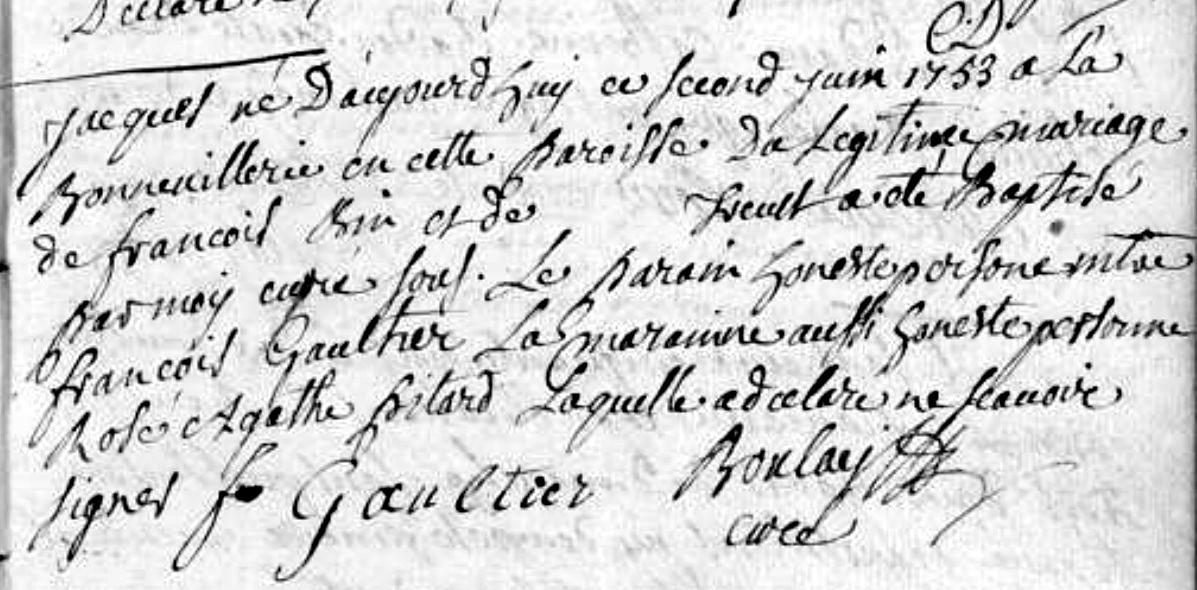 Declare ne
C.D
jacques né D'aujourd huy ce second juin 1753 a La
Bonneuillerie en cette Paroisse Du Legitime mariage
de francois Bin et de heult a été Baptisé
Par moy curé sous. Le Parain honeste persone mtre
francois Gaultier La maraine aussi honeste personne
Rose Agathe pitard Laquelle a declaré ne scauoir
signer f Gaultier Boulay
curé